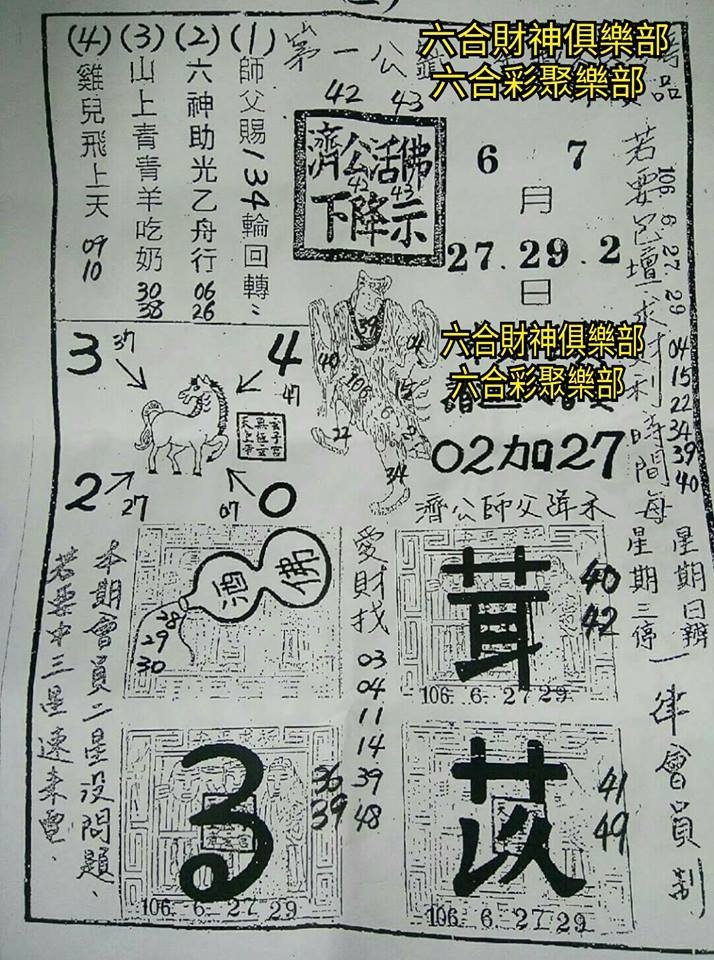 六合財神俱樂部
六合彩聚樂部
(1)師父賜134輪回轉
(2)六神助光乙舟行 06 26
(3)山上青青羊吃奶 30 38
(4)雞兒飛上天 09 10
第一公
42 43
濟公活佛
42 43
下降示
6 7
月
27.29.2
日
若要包壇求財利時間每
106 6 27 29
04
15
22
34
39
40
星期日辦
星期三停
一律會員制
六合財神俱樂部
六合彩聚樂部
02加27
濟公師父
3 37
4 47
2 27
0 07
39
40
04
106
15
6
22
34
佛
酒
28
29
30
愛財找
03
04
11
14
39
48
茸
40
42
106. 6. 27 29
本期會員二星沒問題、
若要中三星速來電、
36
39
106. 6. 27 29
苡
41
49
106. 6. 27 29